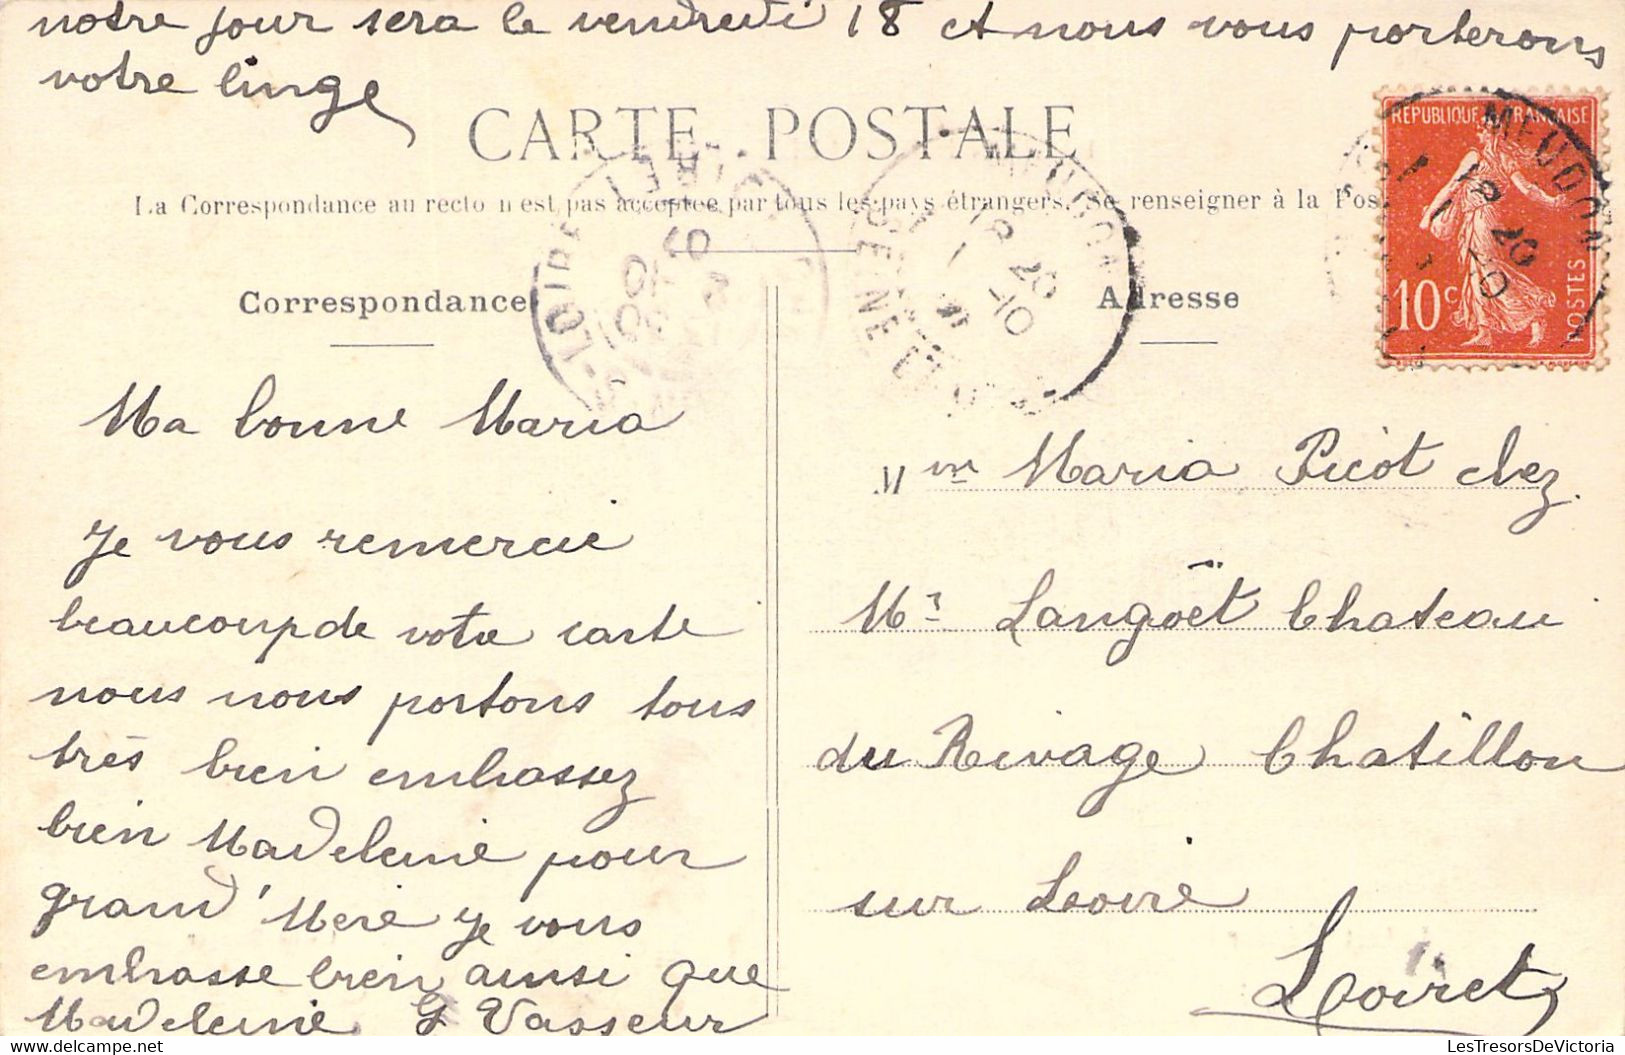 notre jour sera le vendredi 18 et nous vous porterons
votre linge
CARTE POSTALE
La Correspondance au recto n'est pas acceptée par tous les pays étrangers. Se renseigner à la Pos
Correspondance
Ma bonne Maria
Je vous remercie
beaucoup de votre carte
nous nous portons tous
très bien embrassez
bien Madeleine pour
grand'Mère je vous
embrasse bien ainsi que
Madeleine G Vasseur
Adresse
RÉPUBLIQUE FRANÇAISE
10c
POSTES
MEUDON
18 20
MEUDON
SEINE
18 20
LOIRET
Mme Maria Picot chez
Mr Langöet Chateau
du Rivage Chatillon
sur Loire
Loiret
LesTresorsDeVictoria
delcampe.net